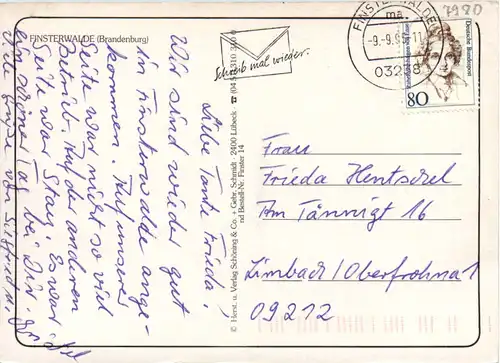 7980
FINSTERWALDE (Brandenburg)
FINSTERWALDE
ma
-9.-9.95.11
03238
Schreib mal wieder.
Deutsche Bundespost
80
Liebe Tante Frieda!
Wir sind wieder gut
in Finsterwalde ange-
kommen. Auf unserer
Seite war nicht so viel
Betrieb. Auf der anderen
Seite war Stau. Es war
ein schöner Tag bei Dir.
Viele Grüße von Siegfried u.
© Herst. u. Verlag Schöning & Co. + Gebr. Schmidt · 2400 Lübeck
Bestell-Nr. Finster 14
Frau
Frieda Hentschel
Am Tännigt 16
Limbach/Oberfrohna 1
09212